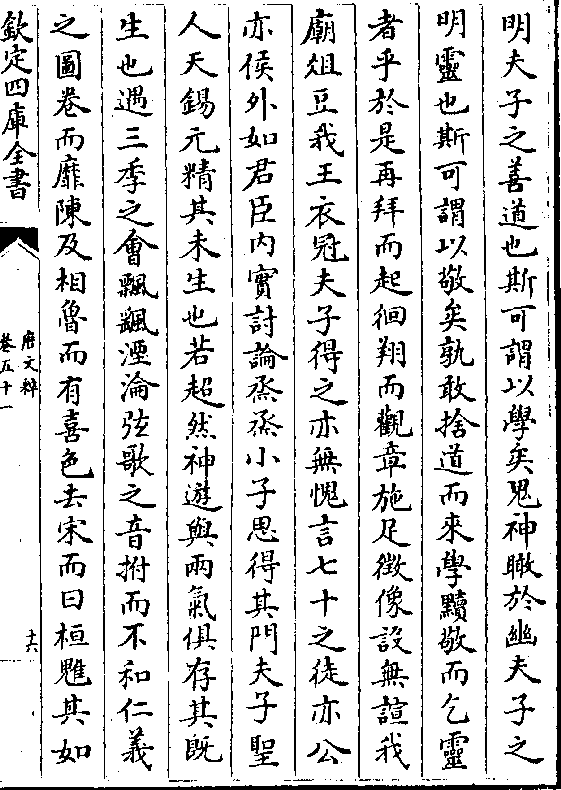 明夫子之善道也斯可謂以學矣鬼神瞰於幽夫子之
明靈也斯可謂以敬矣孰敢捨道而來學黷敬而乞靈
者乎於是再拜而起徊翔而觀章施足徵像設無諠我
廟俎豆我王衣冠夫子得之亦無愧言七十之徒亦公
亦侯外如君臣内實討論烝烝小子思得其門夫子聖
人天錫元精其未生也若超然神遊與兩氣俱存其既
生也遇三季之會飄颻湮淪弦歌之音拊而不和仁義
之圖卷而靡陳及相魯而有喜色去宋而曰桓魋其如
欽定四庫全書
唐文粹
卷五十一
十六